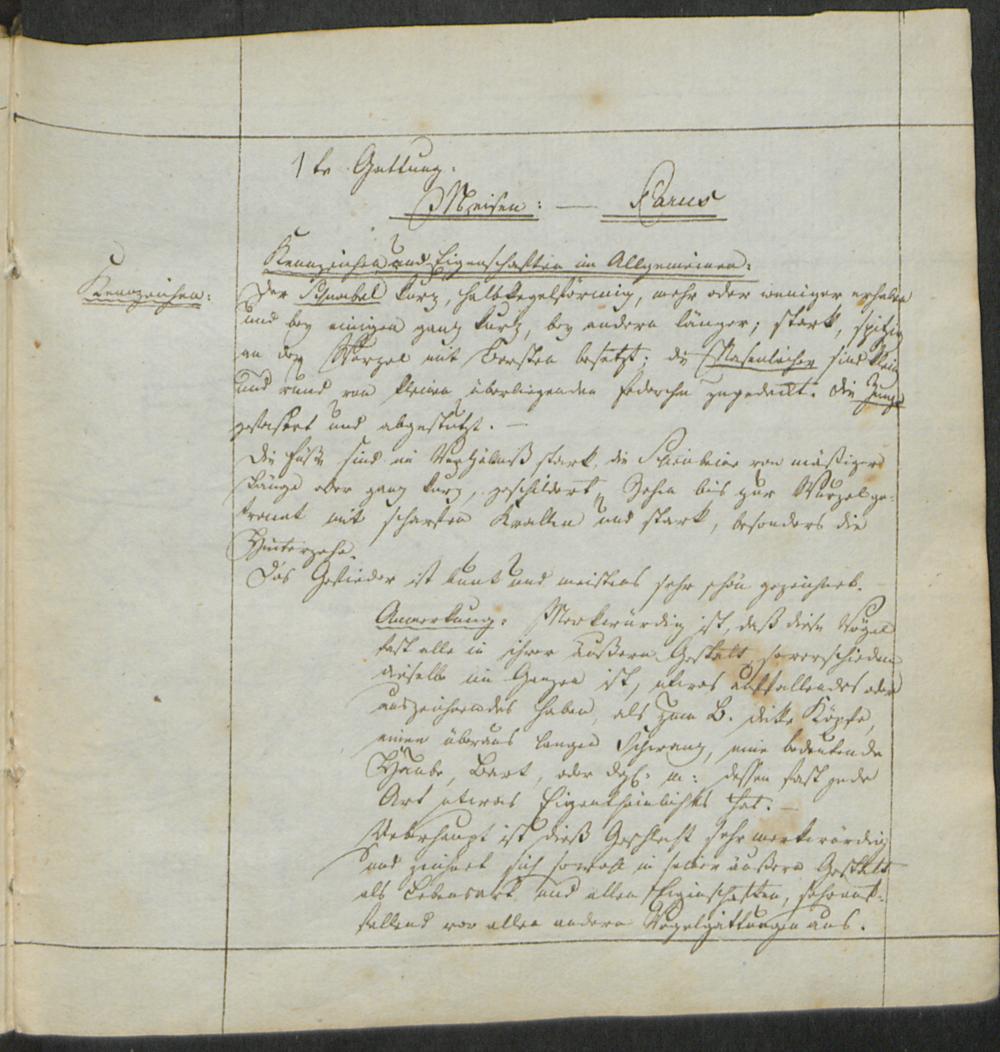 1te Gattung.
Meisen: — Parus
Kennzeichen und Eigenschaften im Allgemeinen:
Kennzeichen:
Der Schnabel kurz, halbkegelförmig, mehr oder weniger erhaben
und bey einigen ganz kurz, bey andern länger; stark, spitzig
an der Wurzel mit Borsten besetzt; die Nasenlöcher sind klein
und rund von kleinen überliegenden Federchen zugedeckt. Die Zunge
gefasert und abgestutzt. —
Die Füße sind im Verhältniß stark, die Schienbeine von mäßiger
Länge oder ganz kurz, geschildert, Zehen bis zur Wurzel ge-
trennt mit scharfen Krallen und stark, besonders die
Hinterzehe.
Das Gefieder ist bunt und meistens sehr schön gezeichnet.
Anmerkung: Merkwürdig ist, daß diese Vögel
fast alle in ihrer äußern Gestalt, so verschieden
dieselbe im Ganzen ist, etwas auffallendes oder
auszeichnendes haben, als zum B. dicke Köpfe,
einen überaus langen Schwanz, eine bedeutende
Haube, Bart, oder dgl. m: dessen fast jede
Art etwas Eigenthümliches hat. —
Ueberhaupt ist dieß Geschlecht sehr merkwürdig
und zeichnet sich sowohl in seiner äußern Gestalt
als Lebensart und allen Eigenschaften, sehr auf-
fallend vor allen andern Vogelgattungen aus.